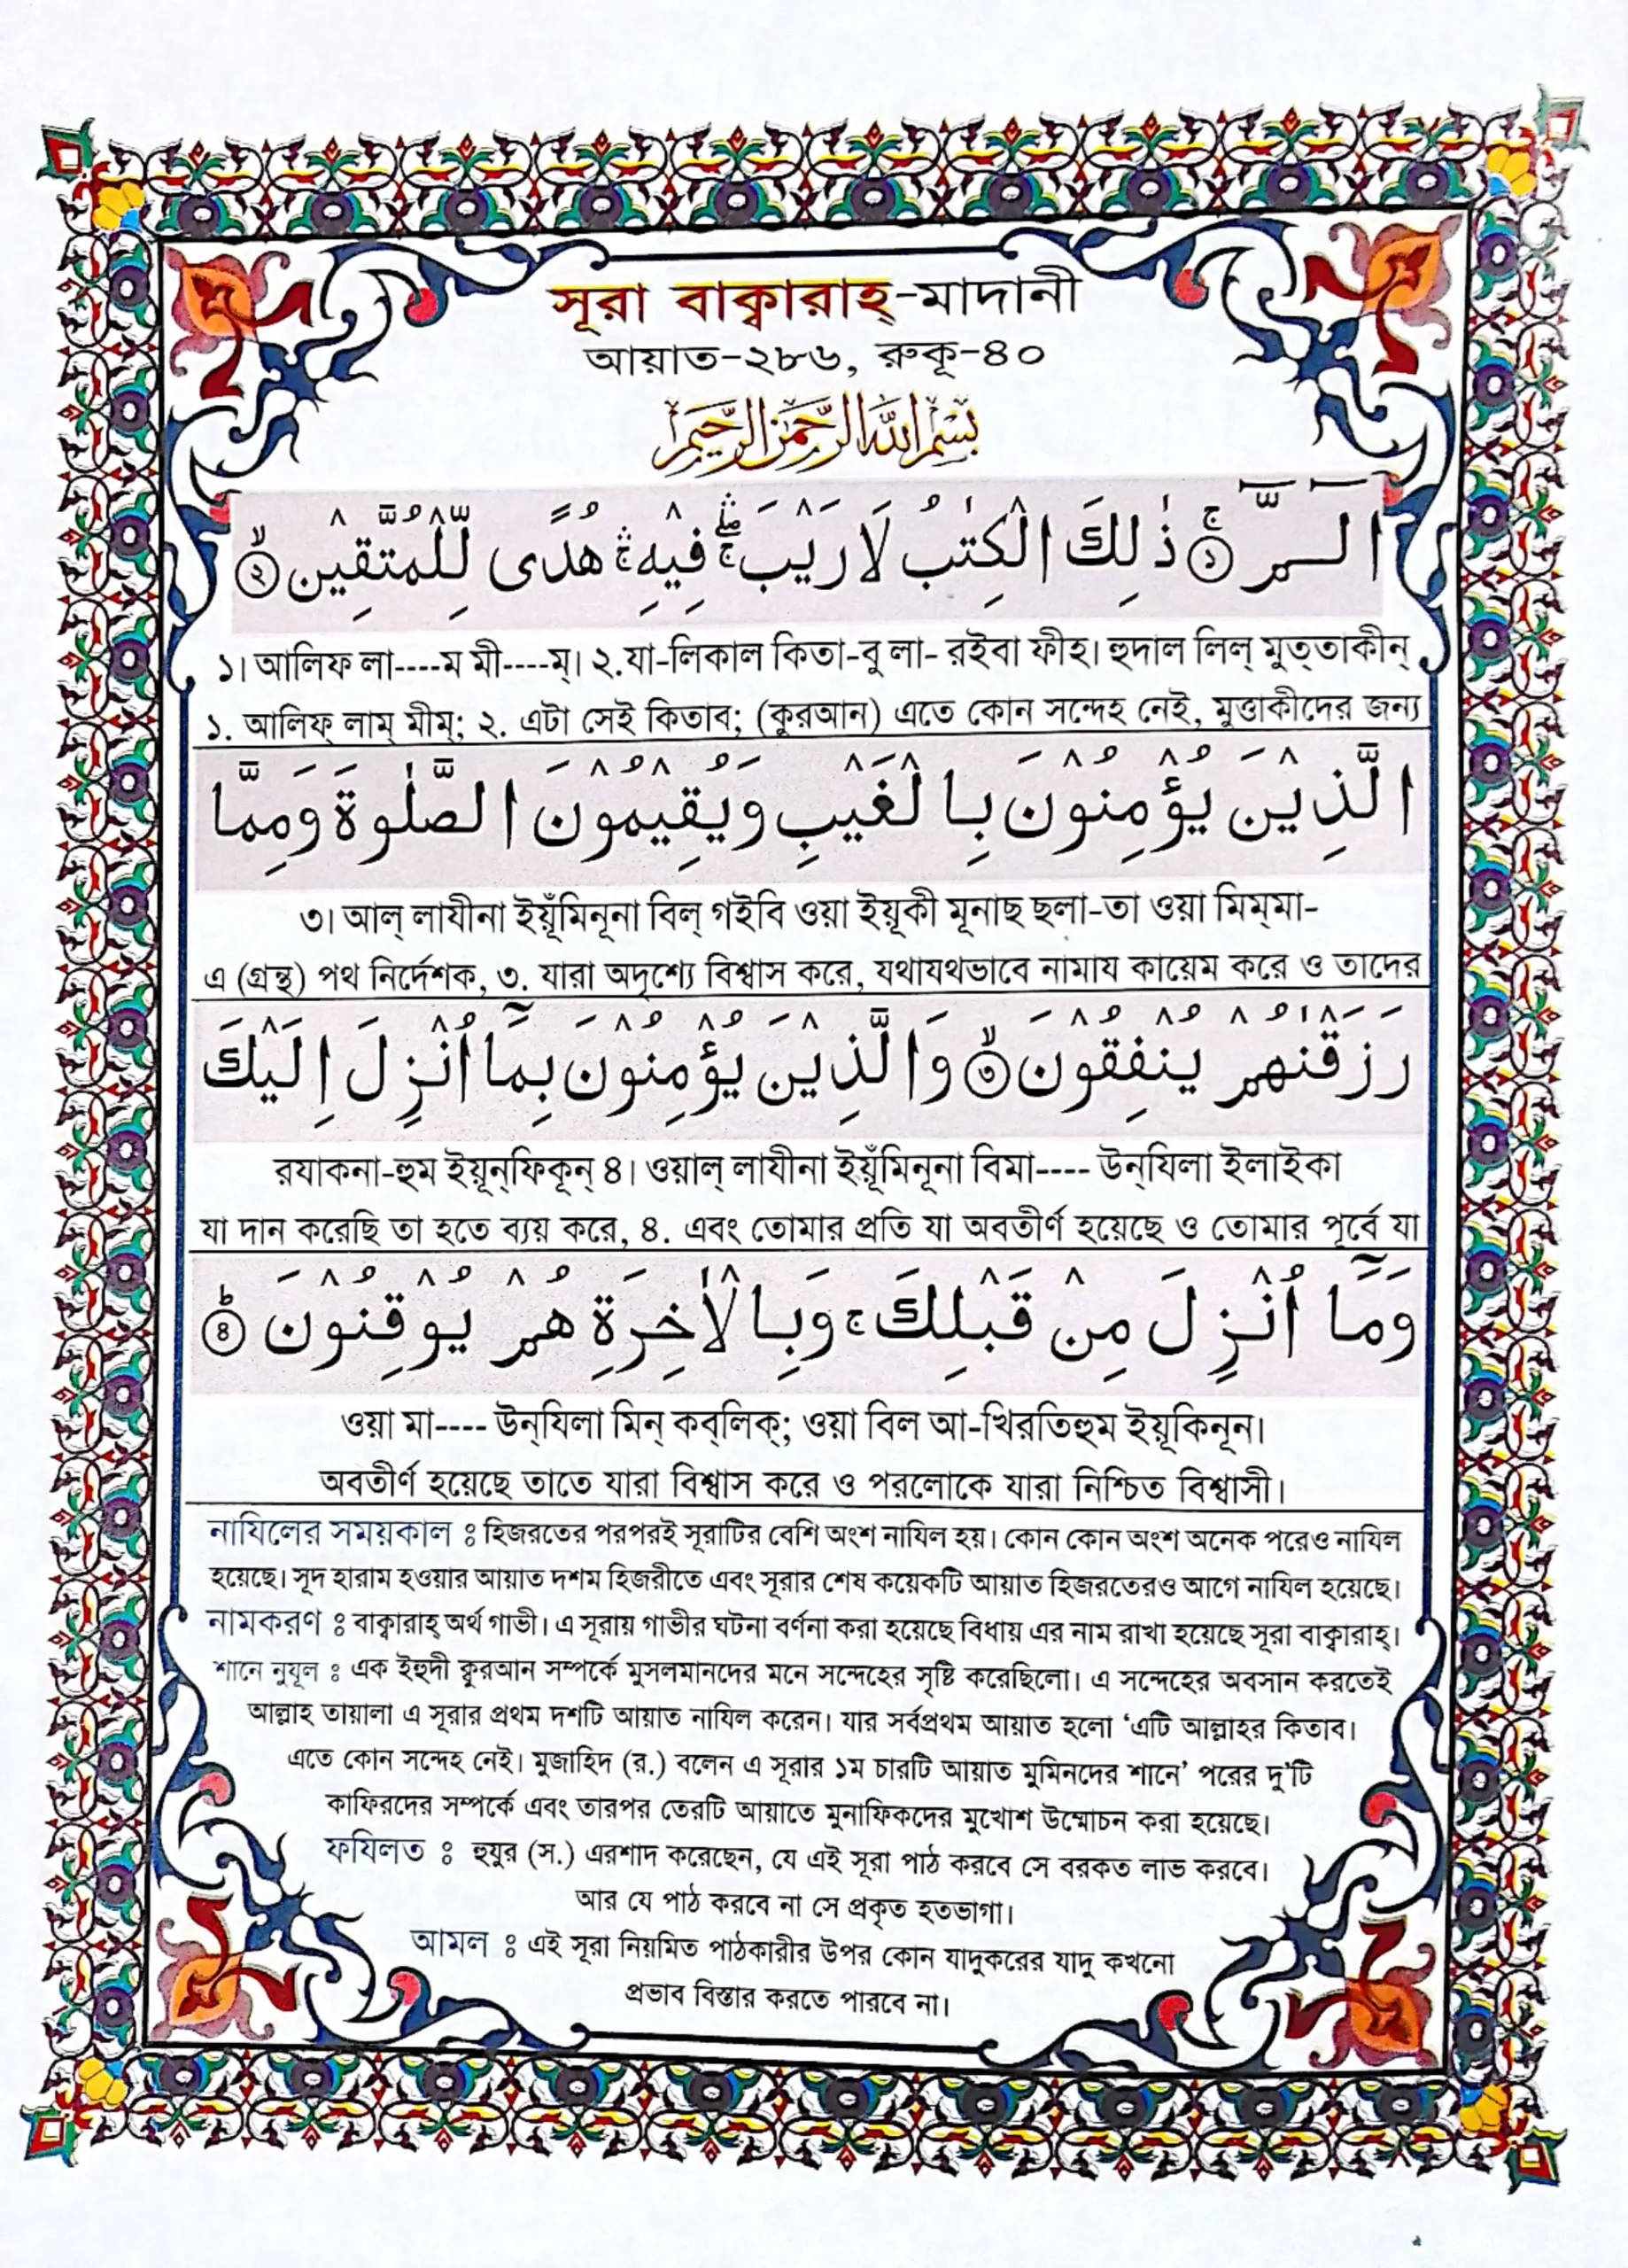 সূরা বাক্বারাহ্-মাদানী
আয়াত-২৮৬, রুকূ-৪০
بِسْمِ اللهِ الرَّحْمٰنِ الرَّحِيْمِ
الٓـمّٓ ۚ ﴿١﴾ ذٰلِكَ الْكِتٰبُ لَا رَيْبَ ۛۖۚ فِيْهِ ۛۚ هُدًى لِّلْمُتَّقِيْنَ ۙ ﴿٢﴾
১। আলিফ লা----ম মী----ম্। ২.যা-লিকাল কিতা-বু লা- রইবা ফীহ। হুদাল লিল্ মুত্তাকীন্
১. আলিফ্ লাম্ মীম্; ২. এটা সেই কিতাব; (কুরআন) এতে কোন সন্দেহ নেই, মুত্তাকীদের জন্য
الَّذِيْنَ يُؤْمِنُوْنَ بِالْغَيْبِ وَيُقِيْمُوْنَ الصَّلٰوةَ وَمِمَّا
৩। আল্ লাযীনা ইয়ূঁমিনূনা বিল্ গইবি ওয়া ইয়ূকী মূনাছ ছলা-তা ওয়া মিম্মা-
এ (গ্রন্থ) পথ নির্দেশক, ৩. যারা অদৃশ্যে বিশ্বাস করে, যথাযথভাবে নামায কায়েম করে ও তাদের
رَزَقْنٰهُمْ يُنْفِقُوْنَ ۙ ﴿٣﴾ وَالَّذِيْنَ يُؤْمِنُوْنَ بِمَآ اُنْزِلَ اِلَيْكَ
রযাকনা-হুম ইয়ূন্ফিকূন্ ৪। ওয়াল্ লাযীনা ইয়ূঁমিনূনা বিমা---- উন্যিলা ইলাইকা
যা দান করেছি তা হতে ব্যয় করে, ৪. এবং তোমার প্রতি যা অবতীর্ণ হয়েছে ও তোমার পূর্বে যা
وَمَآ اُنْزِلَ مِنْ قَبْلِكَ ۚ وَبِالْاٰخِرَةِ هُمْ يُوْقِنُوْنَ ؕ ﴿٤﴾
ওয়া মা---- উন্যিলা মিন্ কব্লিক্; ওয়া বিল আ-খিরতিহুম ইয়ূকিনূন।
অবতীর্ণ হয়েছে তাতে যারা বিশ্বাস করে ও পরলোকে যারা নিশ্চিত বিশ্বাসী।
নাযিলের সময়কাল ঃ হিজরতের পরপরই সূরাটির বেশি অংশ নাযিল হয়। কোন কোন অংশ অনেক পরেও নাযিল
হয়েছে। সূদ হারাম হওয়ার আয়াত দশম হিজরীতে এবং সূরার শেষ কয়েকটি আয়াত হিজরতেরও আগে নাযিল হয়েছে।
নামকরণ ঃ বাক্বারাহ্ অর্থ গাভী। এ সূরায় গাভীর ঘটনা বর্ণনা করা হয়েছে বিধায় এর নাম রাখা হয়েছে সূরা বাক্বারাহ্।
শানে নুযূল ঃ এক ইহুদী ক্বুরআন সম্পর্কে মুসলমানদের মনে সন্দেহের সৃষ্টি করেছিলো। এ সন্দেহের অবসান করতেই
আল্লাহ তায়ালা এ সূরার প্রথম দশটি আয়াত নাযিল করেন। যার সর্বপ্রথম আয়াত হলো ‘এটি আল্লাহর কিতাব।
এতে কোন সন্দেহ নেই। মুজাহিদ (র.) বলেন এ সূরার ১ম চারটি আয়াত মুমিনদের শানে’ পরের দু’টি
কাফিরদের সম্পর্কে এবং তারপর তেরটি আয়াতে মুনাফিকদের মুখোশ উম্মোচন করা হয়েছে।
ফযিলত ঃ হুযুর (স.) এরশাদ করেছেন, যে এই সূরা পাঠ করবে সে বরকত লাভ করবে।
আর যে পাঠ করবে না সে প্রকৃত হতভাগা।
আমল ঃ এই সূরা নিয়মিত পাঠকারীর উপর কোন যাদুকরের যাদু কখনো
প্রভাব বিস্তার করতে পারবে না।